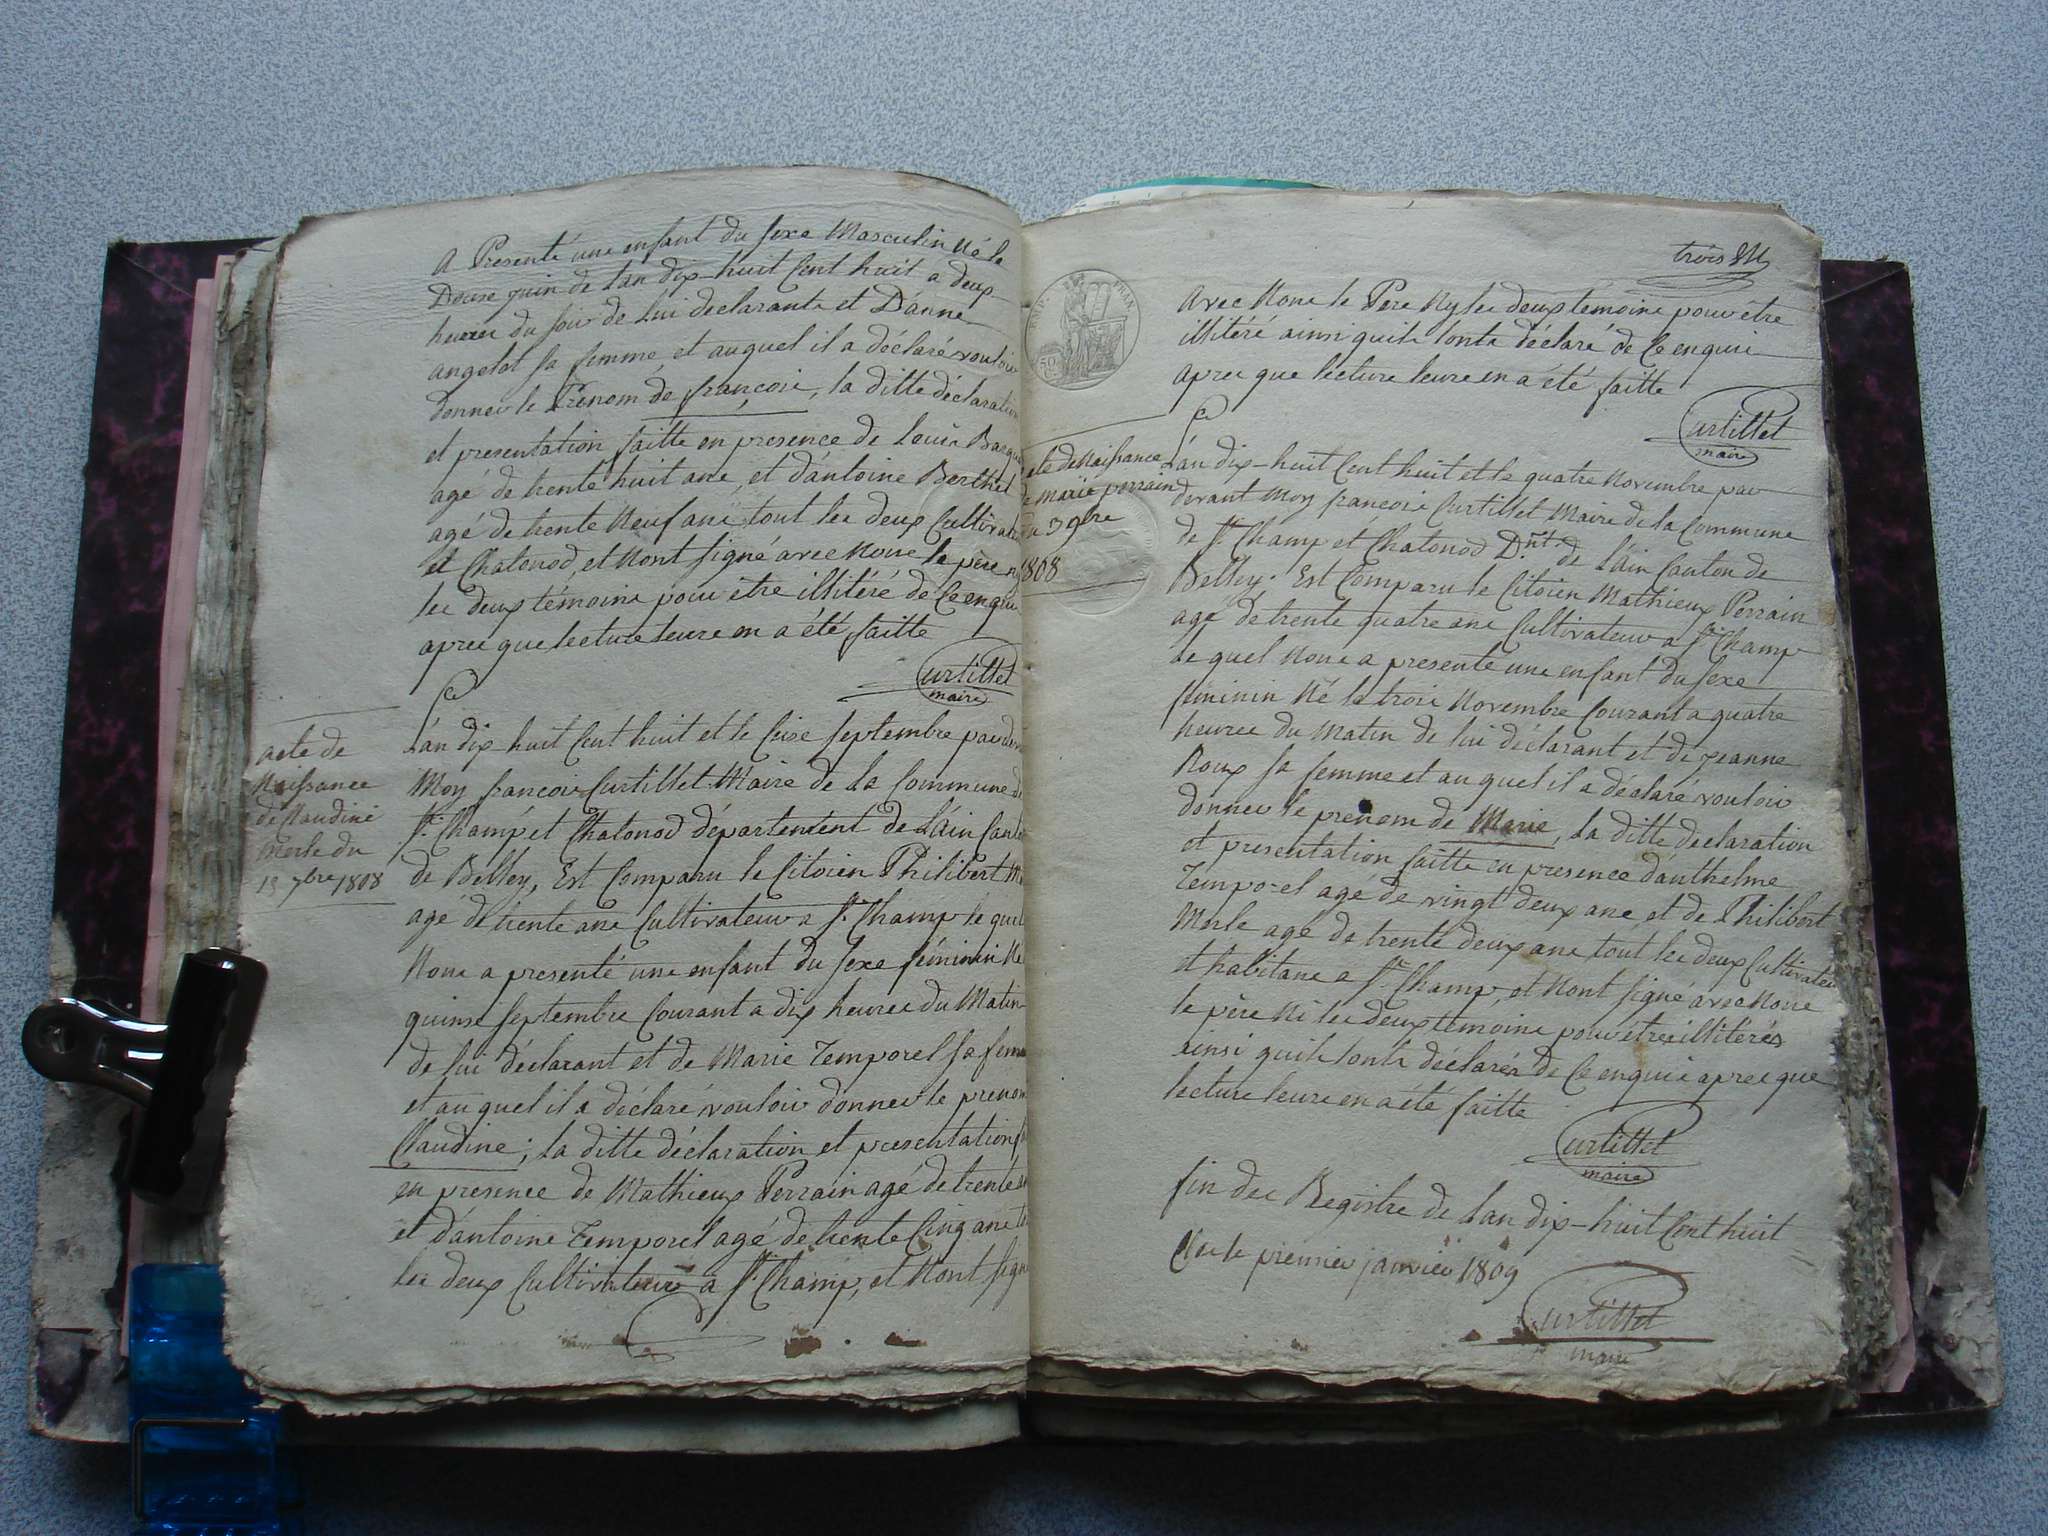 A Presenté une enfant du sexe Masculin Né le
Douse juin de lan dix-huit Cent huit a deux
heures du soir de lui declarants et D'anne
angelot sa femme, et auquel il a déclaré vouloir
donner le Prénom de françois, la ditte déclaration
et presentation faitte en presence de Louis
agé de trente huit ans, et d'antoine Berthet
agé de trente Neuf ans tout les deux Cultivat
et Chatonod, et Nont signé avec Nous le père ny
les deux témoins pour être illitéré de Ce enquis
apres que lecture leurs en a été faitte
Curtillet
maire
acte de
Naissance
de Claudine
merle du
15 7bre 1808
L'an dix huit Cent huit et le seise septembre par de
Moy françois Curtillet Maire de La Commune de
St. Champ et Chatonod département de L'ain Canto
de Belley, Est Comparu le Citoien Philibert M
agé de trente ans Cultivateur a St. Champ le quel
Nous a presenté une enfant du sexe féminin Né
quinse septembre Courant a dix heures du Matin
de lui déclarant et de Marie Temporel sa femm
et au quel il a déclaré vouloir donner le prenom
Claudine; la ditte déclaration et presentation f
en presence de Mathieux Perrain agé de trente
et d'antoine Temporel agé de trente Cinq ans to
les deux Cultivateurs a St. Champ, et Nont sign
trois
Avec Nous le Père Ny les deux temoins pour être
illitéré ainsi quils lonts déclaré de Ce enquis
apres que lecture leurs en a été faitte
Curtillet
maire
cte de Naissance
e marie perrain
du 3 9bre
1808
L'an dix-huit Cent huit et le quatre Novembre par
devant Moy françois Curtillet Maire de la Commune
de St Champ et Chatonod D.nt de L'ain Canton de
Belley. Est Comparu le Citoien Mathieux Perrain
agé de trente quatre ans Cultivateur a St Champ
le quel Nous a presenté une enfant du sexe
feminin Né le trois Novembre Courant a quatre
heures du Matin de lui déclarant et de jeanne
Roux sa femme et au quel il a déclaré vouloir
donner le prenom de Marie, la ditte declaration
et presentation faitte en presence d'anthelme
Temporel agé de vingt deux ans et de Philibert
Merle agé de trente deux ans tout les deux Cultivateu
et habitans a St. Champ, et Nont signé avec Nous
le père Ni les deux temoins pour etre illitérés
ainsi quils lonts déclarés de Ce enquis apres que
lecture leurs en a été faitte
Curtillet
maire
fin des Registre de Lan dix-huit Cent huit
Clos le premier janvier 1809
Curtillet
maire